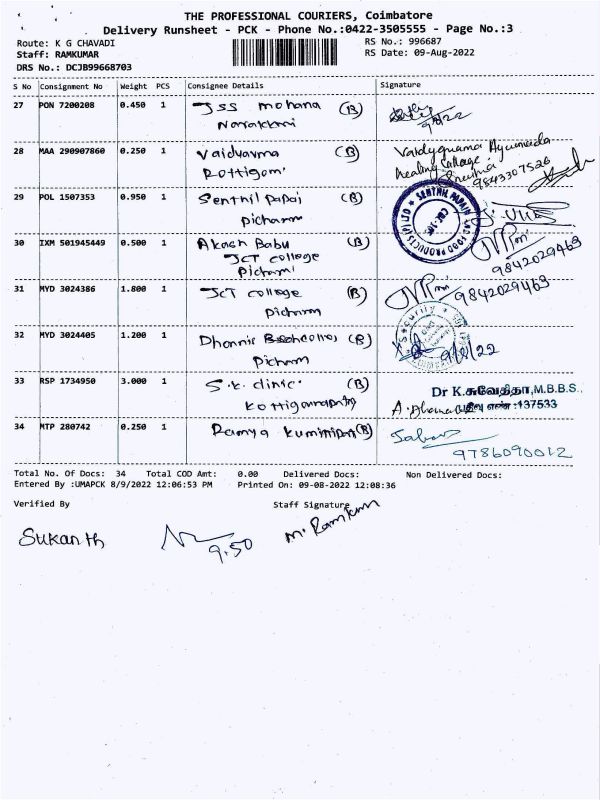 THE PROFESSIONAL COURIERS, Coimbatore
Delivery Runsheet - PCK - Phone No.:0422-3505555 - Page No.:3
Route: K G CHAVADI
RS No.: 996687
Staff: RAMKUMAR
RS Date: 09-Aug-2022
DRS No.: DCJB99668703
S No Consignment No Weight PCS Consignee Details Signature
27 PON 7200208 0.450 1 JSS mohana (B)
9/8/22
28 MAA 290907860 0.250 1 Vaidyavma (B) Vaidyagrama Ayurveda
healing College
9843307526
29 POL 1507353 0.950 1 Senthil Papai (B) SENTHIL PAPAIN AND FOOD PRODUCTS (P) LTD
Picharm
30 IXM 501945449 0.500 1 Akash Babu (B)
JCT college
Picharm
9842029463
31 MYD 3024386 1.800 1 JCT college (B) 9842029463
Picharm
Security
32 MYD 3024405 1.200 1 Dhannis (B) 9/8/22
Picharm
33 RSP 1734950 3.000 1 S.K. clinic. (B) Dr K.சுவேத்தா,M.B.B.S.,
பதிவு எண் :137533
34 MTP 280742 0.250 1 Ramya (B)
9786090012
Total No. Of Docs: 34 Total COD Amt: 0.00 Delivered Docs: Non Delivered Docs:
Entered By :UMAPCK 8/9/2022 12:06:53 PM Printed On: 09-08-2022 12:08:36
Verified By Staff Signature
Sukanth 9.50 M. Ramkum